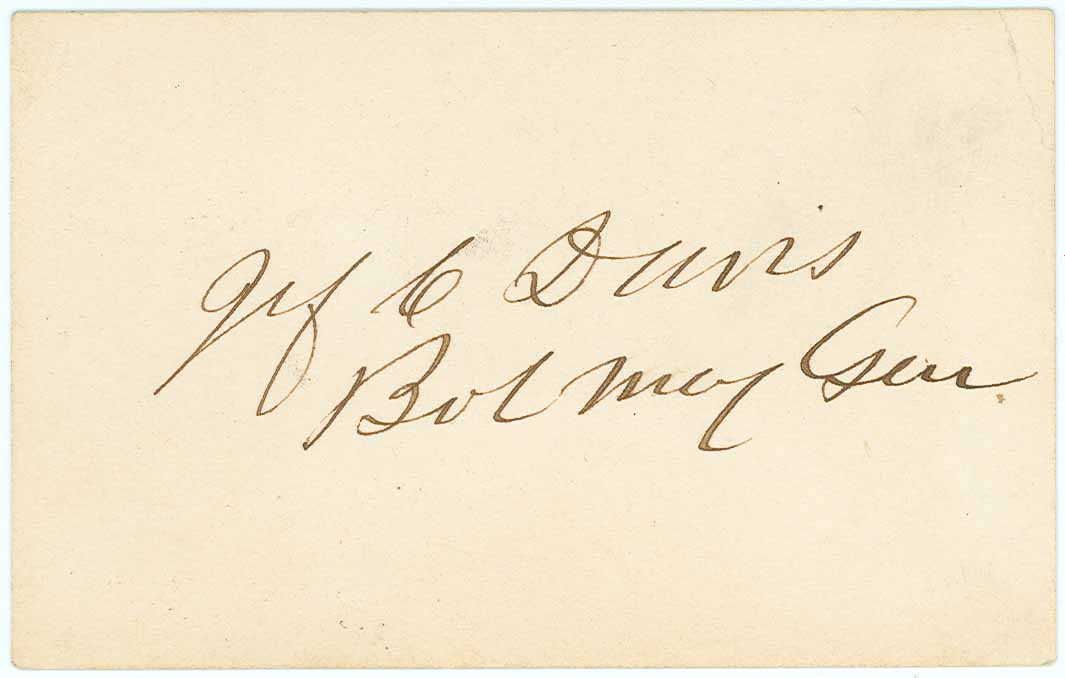 Jef C Davis
Bvt Maj Gen